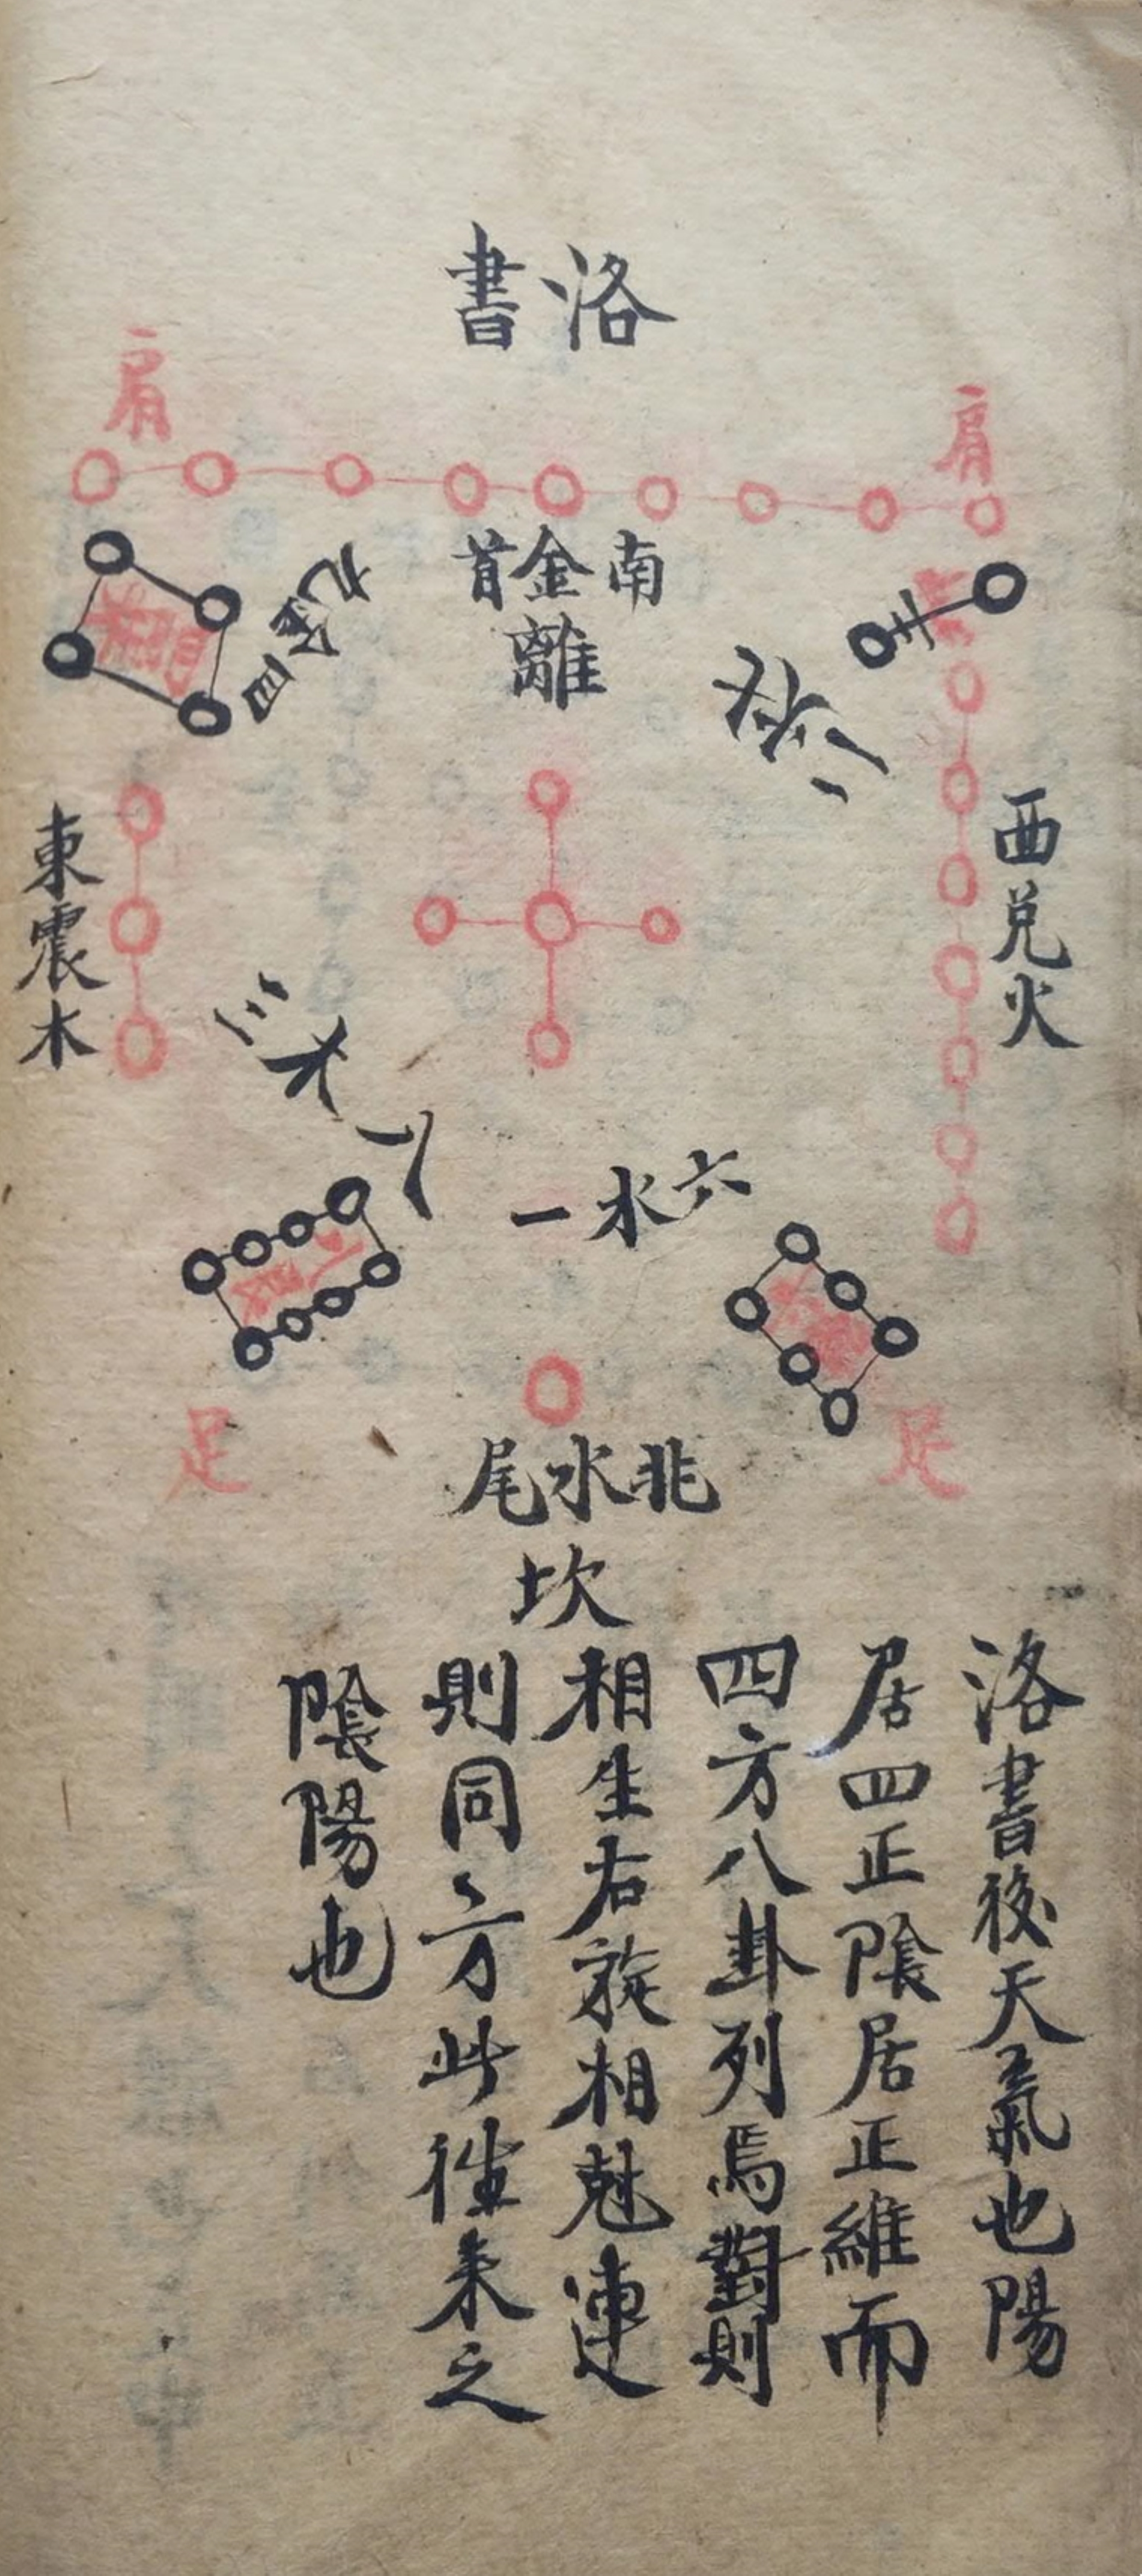 洛書
肩
肩
南金首
離
七火二
九金四
西兌火
東震木
三木八
六水一
足
足
北水尾
坎
洛書後天氣也陽
居四正陰居正維而
四方八卦列焉對則
相生右旋相尅連
則同方此徃来之
陰陽也